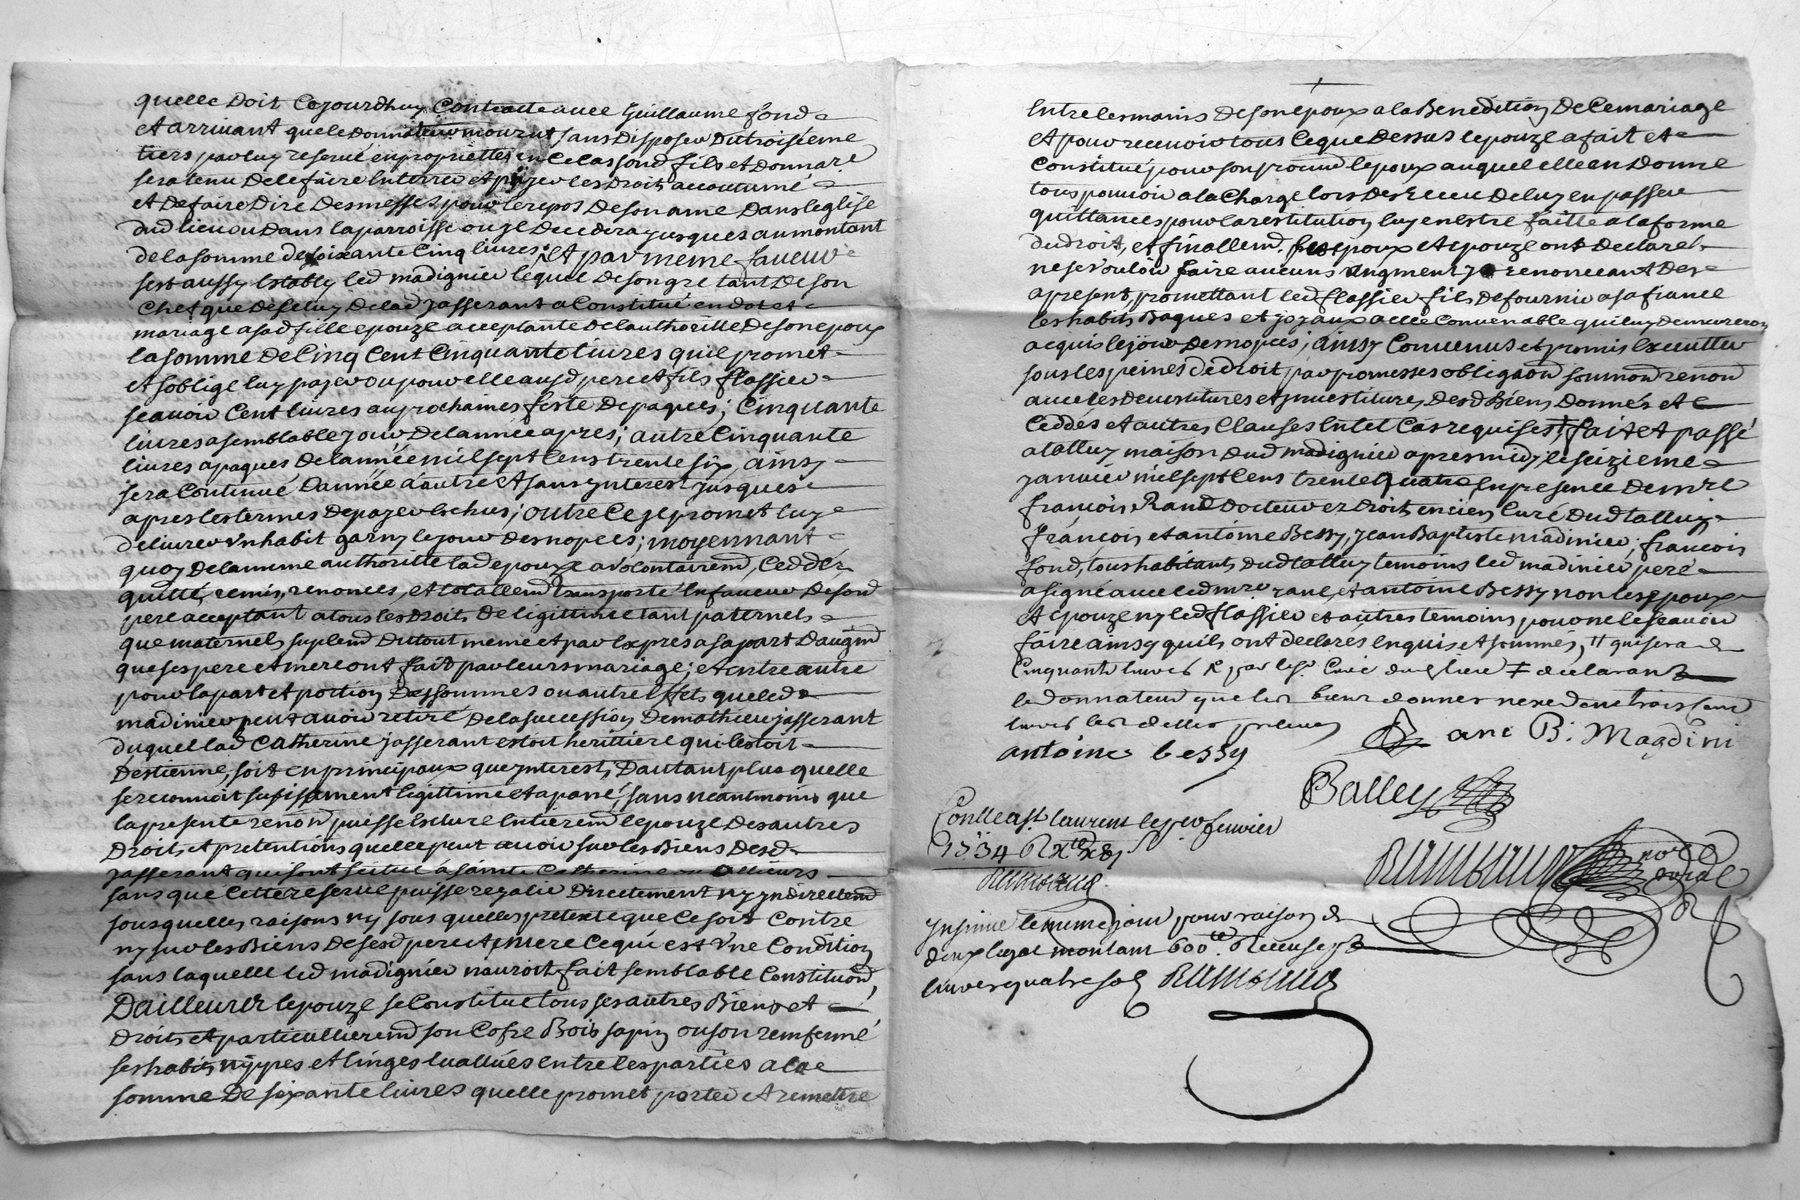 quelle Doit Cejourdhuy Contracte avec Guillaume fond
et arrivant que le Donnateur mourut sans Disposer Du troisieme
tiers par luy reservé en proprietté en Ce Cas fond fils et Donnare
sera tenu De le faire Enterrer et payer les Droits accoutumé
et De faire Dire Des messes pour le repos De son ame Dans leglise
Dud lieu ou Dans la parroisse ou Il Decedera jusques au montant
de la somme de soixante Cinq livres; Et par meme faveur
sest aussy Estably led madignier lequel De son gre tant De son
Chef que De Celuy De lad jasserant a Constitué en dot et
mariage a sad fille epouze acceptante De lauthoritte De son epoux
la somme De Cinq Cent Cinquante livres quil promet
et soblige luy payer ou pour elle ausd pere et fils flassier
scavoir Cent livres au prochaines feste De paques; Cinquante
livres a semblable jour De lannee apres; autre Cinquante
livres a paques De lannee mil sept Cens trente six, ainsy
sera Continué Dannée a autre et sans ynterest jusques
apres les termes De payer Echus; outre Ce Il promet luy
Delivrer Un habit garny le jour Des nopces; moyennant
quoy De la meme authoritté lad epouze a Volontairemt, Ceddé,
quitté, remis, renoncés, et totallemt transporté En faveur De sond
pere acceptant a tous les Droits De legittime tant paternels
que maternels suplemt Dicelle meme et par Expres a sa part Daugmt
que ses pere et mere ont fait par leurs mariage; et Entre autre
pour la part et portion Des sommes ou autre Effets que led
madinier peut avoir retiré De la succession De mathieu jasserant
Duquel lad Catherine jasserant estoit heritiere qui lestoit
Destienne, soit en principaux que ynterest, Dautant plus quelle
se reconnoit sufisament legittimée et apanée, sans neantmoins que
la presente renon puisse Exclure Entieremt lepouze Des autres
Droits et pretentions quelle peut avoir sur les Biens Desd
jasserant qui sont scitué a sainte Catherine ou allieurs
sans que Cette reserve puisse regalir Directement ny yndirectemt
sous quelles raisons ny sous quelles pretexte que Ce soit Contre
ny sur les Biens De sesd pere et mere Ce qui est Une Condition
sans laquelle led madignier nauroit fait semblable Constitution,
Dailleurs lepouze se Constitue tous ses autres Biens et
Droits et particullieremt son Cofre Bois sapin ou son remfermé
ses habits nippes et linges Evallués entre les parties a la
somme De soixante livres quelle promet porter et remettre
Entre les mains De son epoux a la Benediction De Ce mariage
et pour recevoir tous Ce que Dessus lepouze a fait et
Constitué pour son procur lepoux auquel elle en Donne
tous pouvoir a la Charge lors Des Receu De luy en passer
quittances pour la restitution luy en Estre faitte a la forme
du droit, et finallemt. les epoux et epouze ont Declarés
ne se Vouloir faire aucuns augment y renonceant Des
a present, promettant led flassier fils De fournir a sa fiancé
les habits Bagues et joyaux a elle Convenable qui luy Demeureront
acquis le jour Des nopces, ainsy Convenus et promis Executter
sous les peines De Droit par promesses obligaon soumon renon
avec les Devestitures et Jnvestitures Desd Biens Donnés et
Ceddés et autres Clauses En tel Cas requises; fait et passé
a talluy maison Dud madignier apres midy le seizieme
janvier mil sept Cens trente quatre En presence De mre
françois Rand Docteur ez Droits encien Curé Dud talluy
françois et antoine Bessy, jean Baptiste madinier, francois
fond, tous habitants Dud talluy temoins led madinier pere
a signé avec led mre rand, et antoine Bessy non les epoux
et epouze ny led flassier et autres temoins pour ne le scavoir
faire ainsy quils ont declares Enquis et sommés,
Cinquante livres par le sr Curé dud lieu ≠ declarant
le donnateur que les biens donner nexedent trois Cent
livres
antoine bessy
ani B. Magdini
Balley
Conlle a st. laurent le per fevrier
1734
Rambaud
Jnsinué le meme jour pour raison de
deux legat montant 600ll Receu
livres quatre sols Rambaud